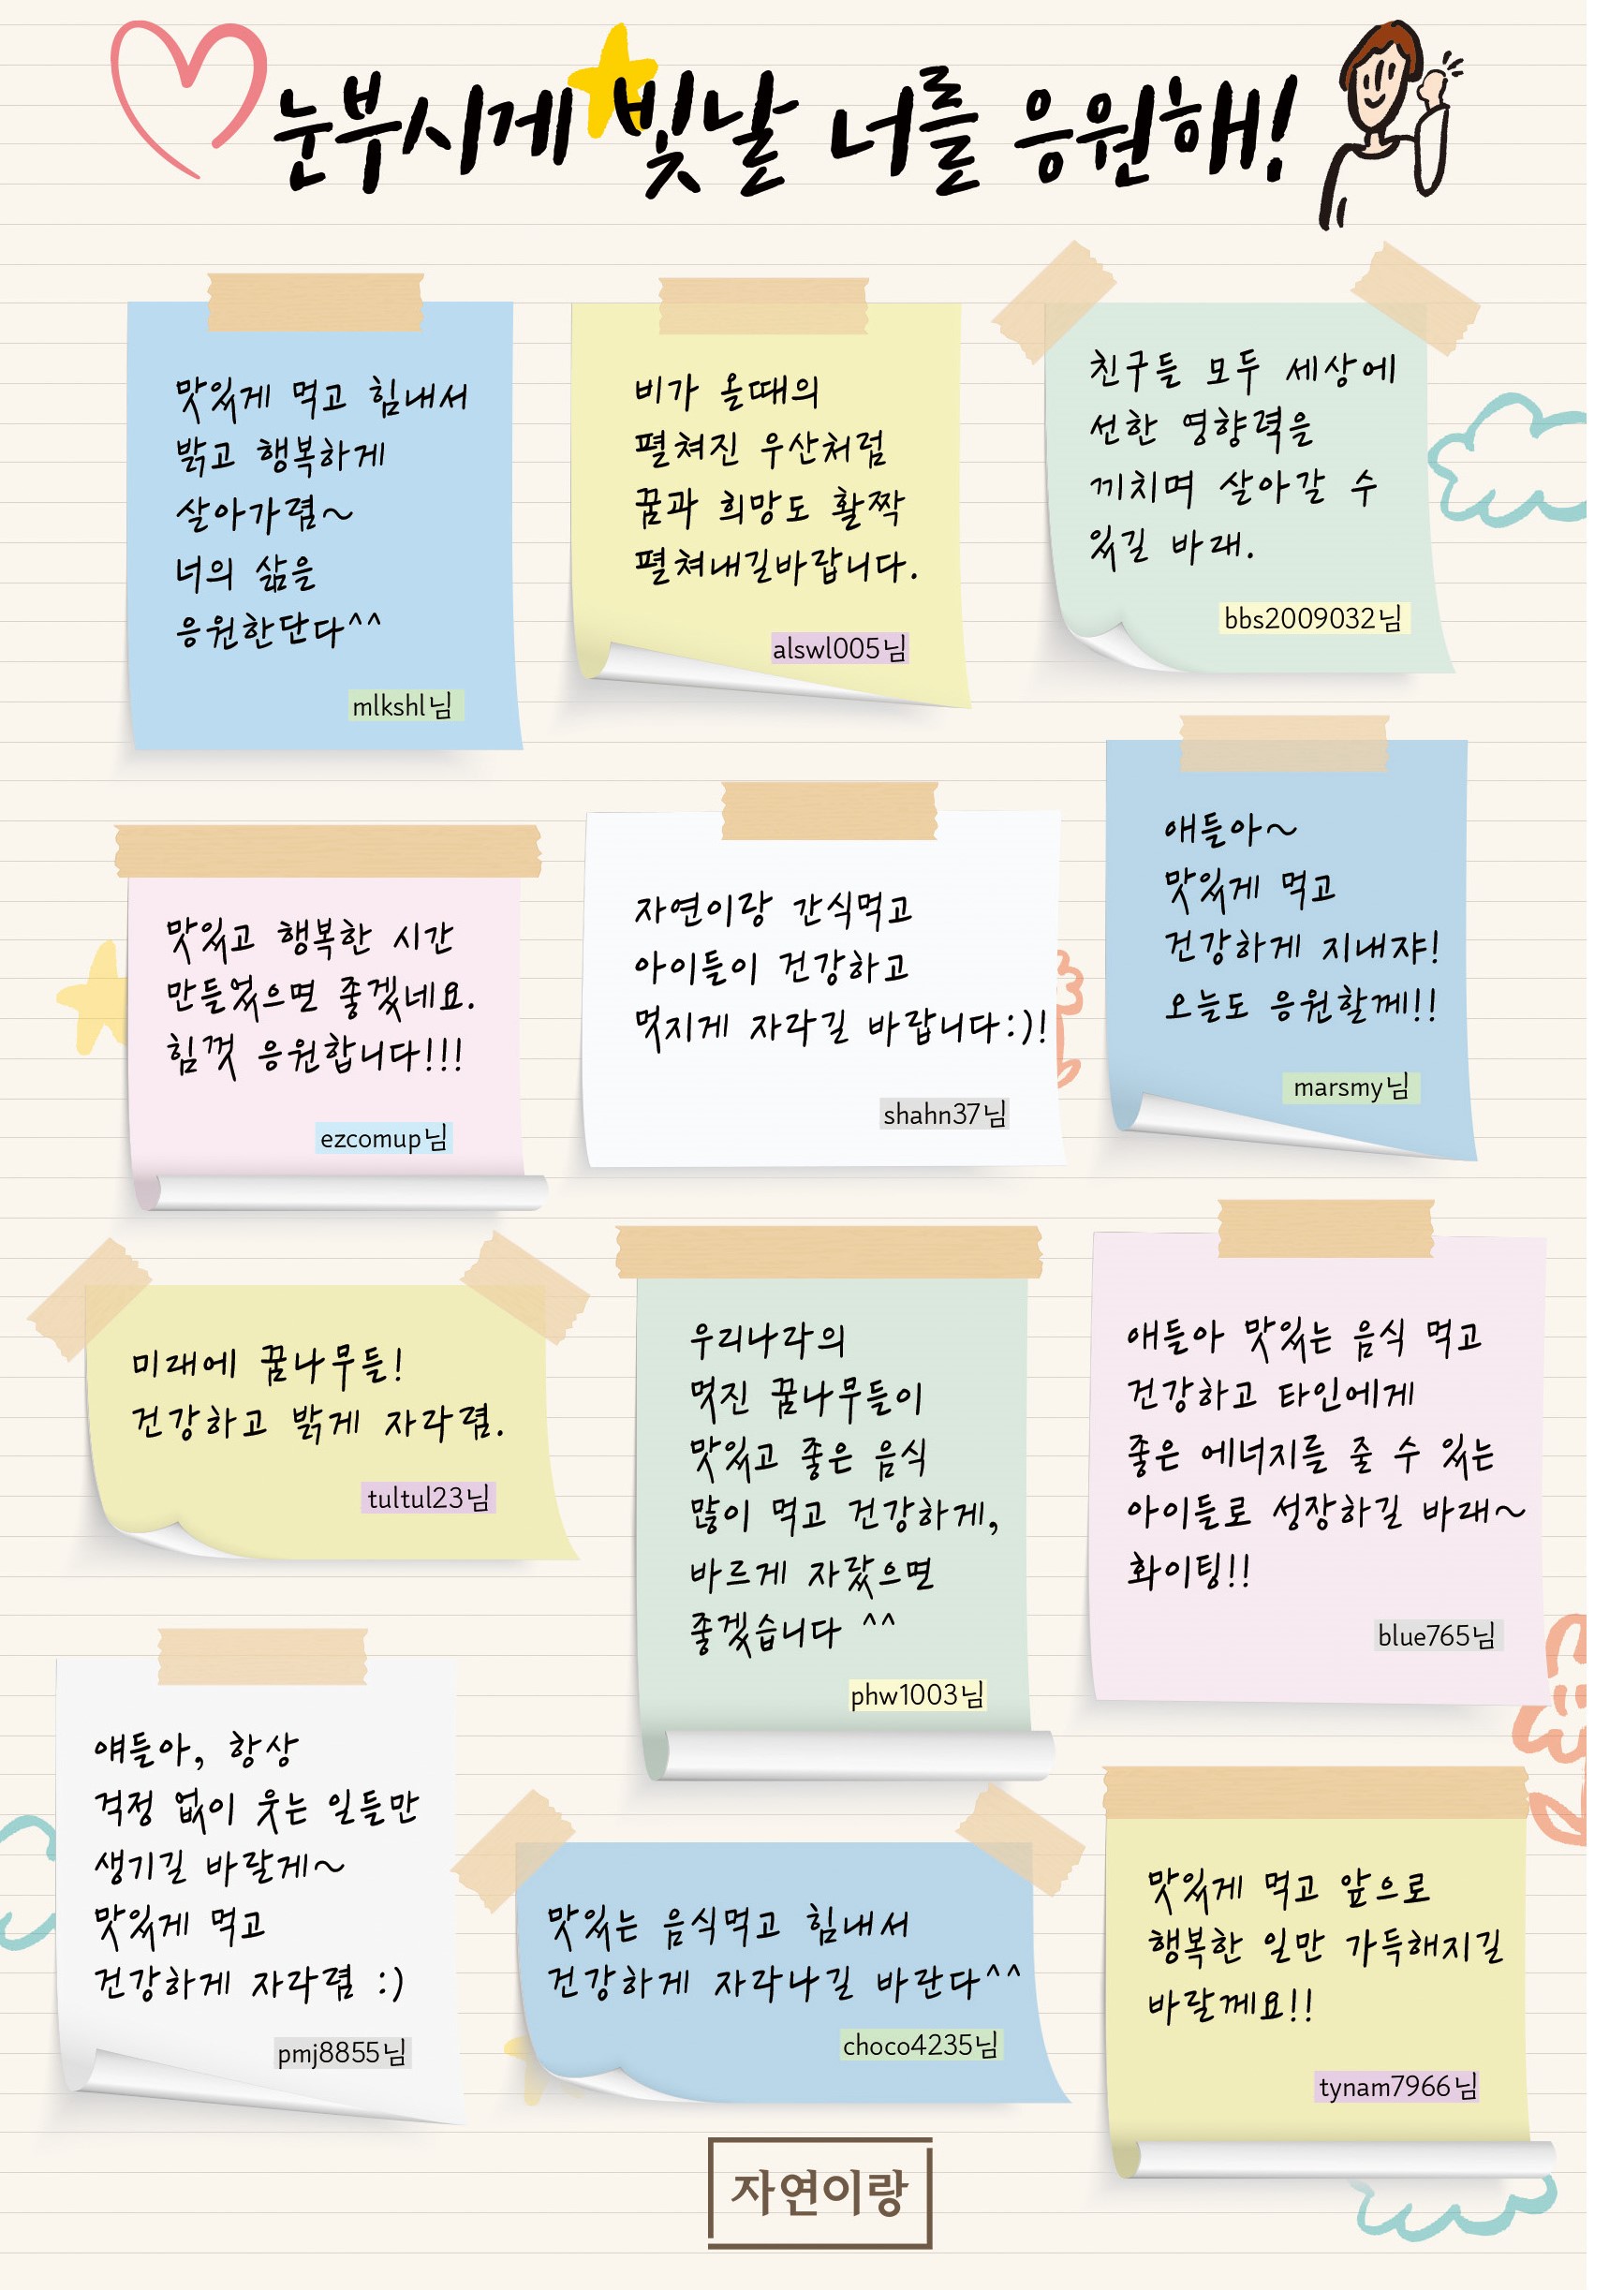 눈부시게 빛날 너를 응원해!
맛있게 먹고 힘내서
밝고 행복하게
살아가렴~
너의 삶을
응원한단다^^
mlkshl님
비가 올때의
펼쳐진 우산처럼
꿈과 희망도 활짝
펼쳐내길바랍니다.
alswl005님
친구들 모두 세상에
선한 영향력을
끼치며 살아갈 수
있길 바래.
bbs2009032님
맛있고 행복한 시간
만들었으면 좋겠네요.
힘껏 응원합니다!!!
ezcomup님
자연이랑 간식먹고
아이들이 건강하고
멋지게 자라길 바랍니다:)!
shahn37님
애들아~
맛있게 먹고
건강하게 지내쟈!
오늘도 응원할께!!
marsmy님
미래에 꿈나무들!
건강하고 밝게 자라렴.
tultul23님
우리나라의
멋진 꿈나무들이
맛있고 좋은 음식
많이 먹고 건강하게,
바르게 자랐으면
좋겠습니다 ^^
phw1003님
애들아 맛있는 음식 먹고
건강하고 타인에게
좋은 에너지를 줄 수 있는
아이들로 성장하길 바래~
화이팅!!
blue765님
얘들아, 항상
걱정 없이 웃는 일들만
생기길 바랄게~
맛있게 먹고
건강하게 자라렴 :)
pmj8855님
맛있는 음식먹고 힘내서
건강하게 자라나길 바란다^^
choco4235님
맛있게 먹고 앞으로
행복한 일만 가득해지길
바랄께요!!
tynam7966님
자연이랑